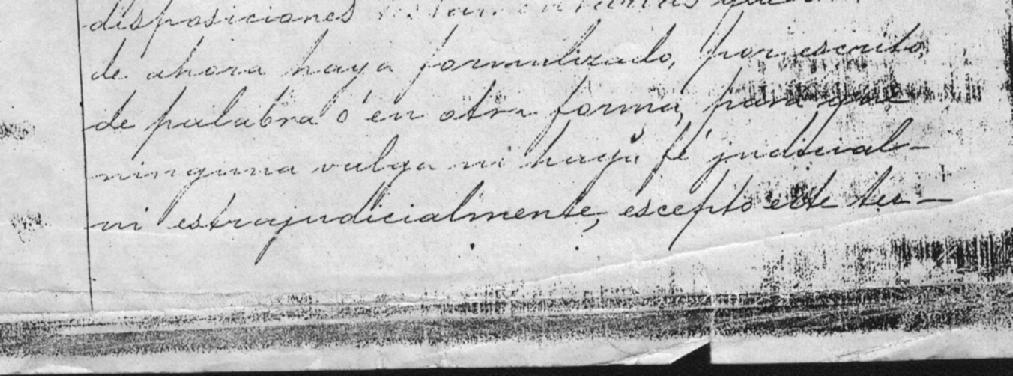 disposiciones testamentarias que
de ahora haya formulizado, por escrito,
de palabra ó en otra forma, para que
ninguna valga ni haga fé judicial-
ni estrajudicialmente, escepto este tes-